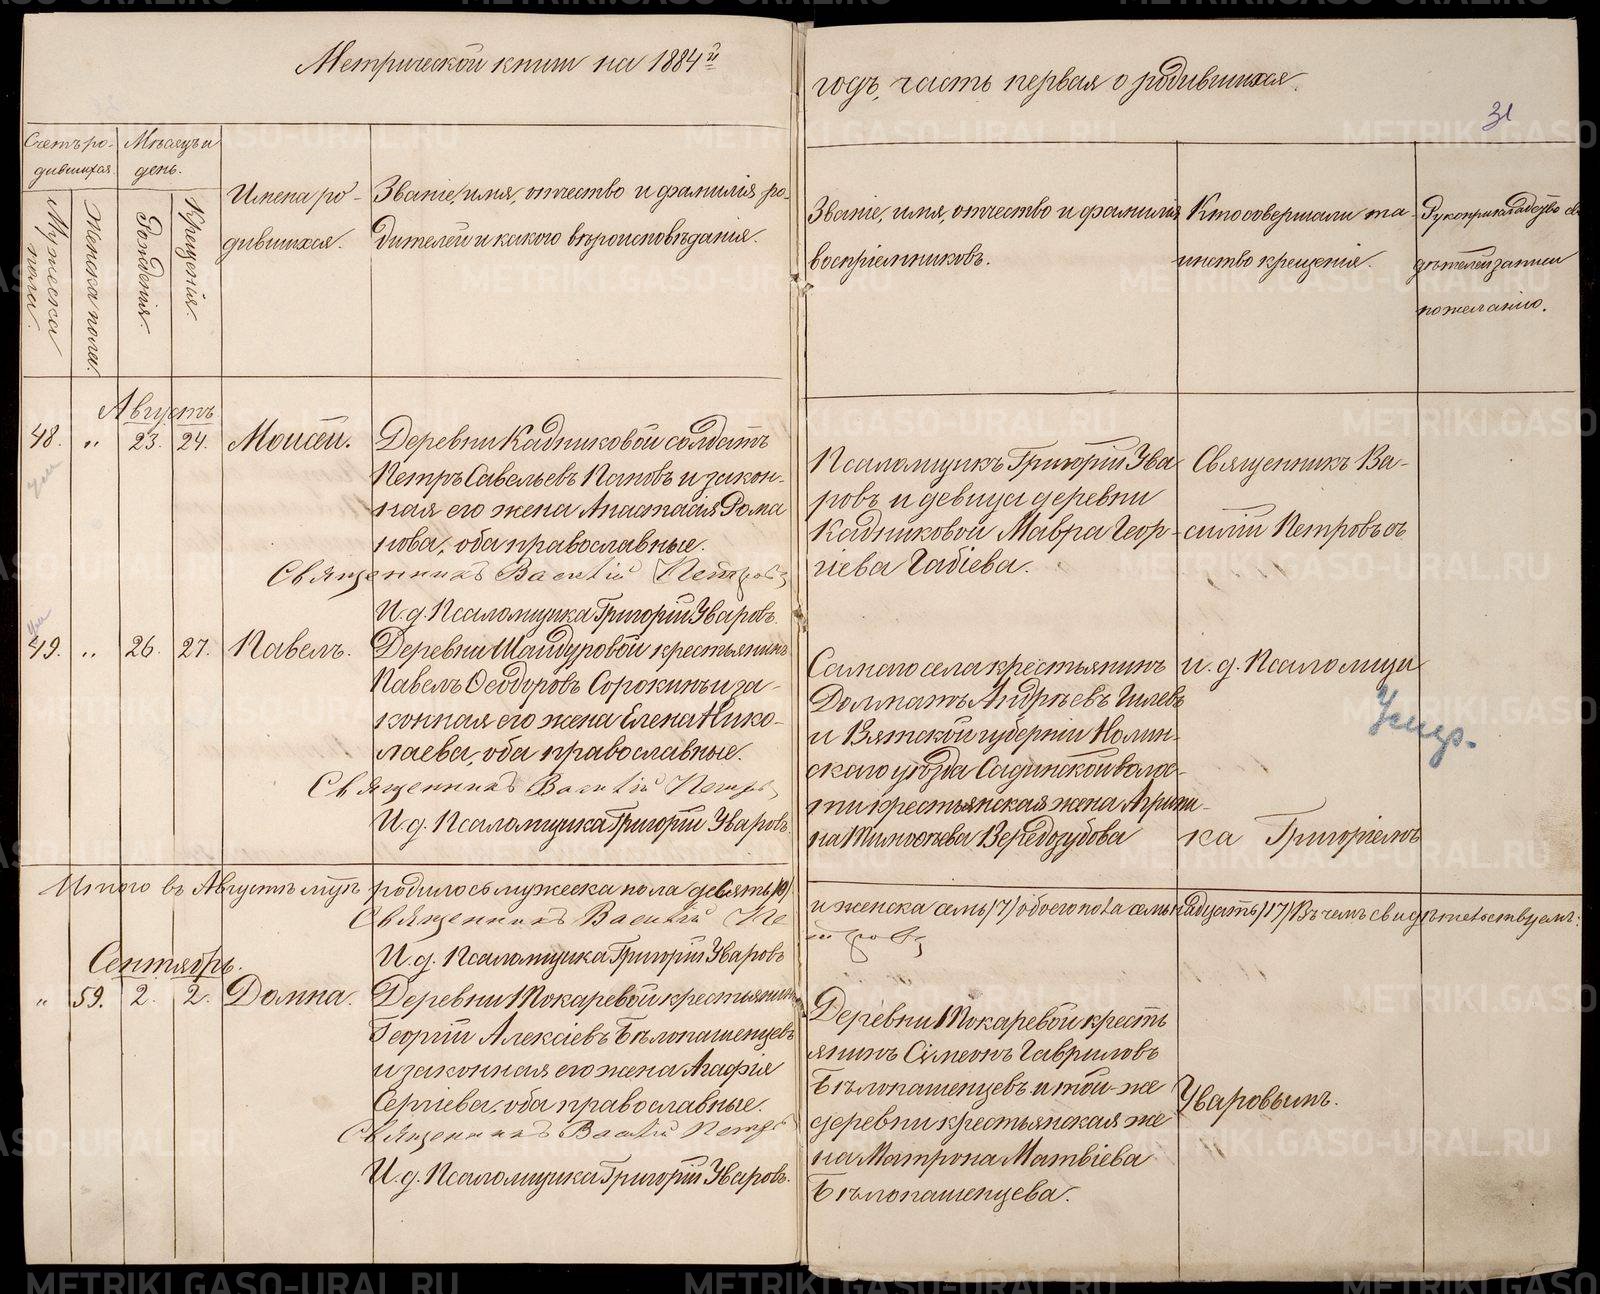 Метрической книги на 1884й
годъ, часть первая о родившихся.
31
Счетъ ро-
дившихся.
Мужеска
пола.
Женска пола.
Мѣсяцъ и
день.
Рожденія.
Крещенія.
Имена ро-
дившихся.
Званіе, имя, отчество и фамилія ро-
дителей и какого вѣроисповѣданія.
Званіе, имя, отчество и фамилія
воспріемниковъ.
Кто совершалъ та-
инство крещенія.
Рукоприкладство сви
дѣтелей записи
по желанію.
Августъ
48. „ 23. 24. Моисей.
Деревни Кадниковой солдатъ
Петръ Савельевъ Поповъ и закон-
ная его жена Анастасія Рома
нова, оба православные.
Священникъ Василій Петровъ
И. д. Псаломщика Григорій Уваровъ.
Псаломщикъ Григорій Ува
ровъ и девица деревни
Кадниковой Мавра Геор-
гіева Габіева.
Священникъ Ва-
силій Петровъ съ
49. „ 26. 27. Павелъ.
Деревни Шайдуровой крестьянинъ
Павелъ Ѳеодоровъ Сорокинъ и за-
конная его жена Елена Нико-
лаева, оба православные.
Священникъ Василій Петровъ
И. д. Псаломщика Григорій Уваровъ
Самаго села крестьянинъ
Долматъ Андрѣевъ Гилевъ
и Вятской губерніи Нолин-
скаго уѣзда Садинской воло-
сти крестьянская жена Агрипи-
на Тимоѳѣева Вередозубова
и. д. Псаломщи
ка Григоріемъ
Умер.
Итого въ Августѣ мѣцѣ родилось мужеска пола девять /9/
и женска семь /7/ обоего пола семьнадцать /17/ Въ чемъ свидѣтельствуемъ:
Священникъ Василій Пе
тровъ
И. д. Псаломщика Григорій Уваровъ
Сентябрь.
„ 59. 2. 2. Домна.
Деревни Токаревой крестьянинъ
Георгій Алексіевъ Бѣлопашенцевъ
и законная его жена Агафія
Сергіева, оба православные.
Священникъ Василій Петровъ
И. д. Псаломщика Григорій Уваровъ.
Деревни Токаревой кресть
янинъ Сімеонъ Гавриловъ
Бѣлопашенцевъ и той-же
деревни крестьянская же
на Матрона Матвіева
Бѣлопашенцева.
Уваровымъ.